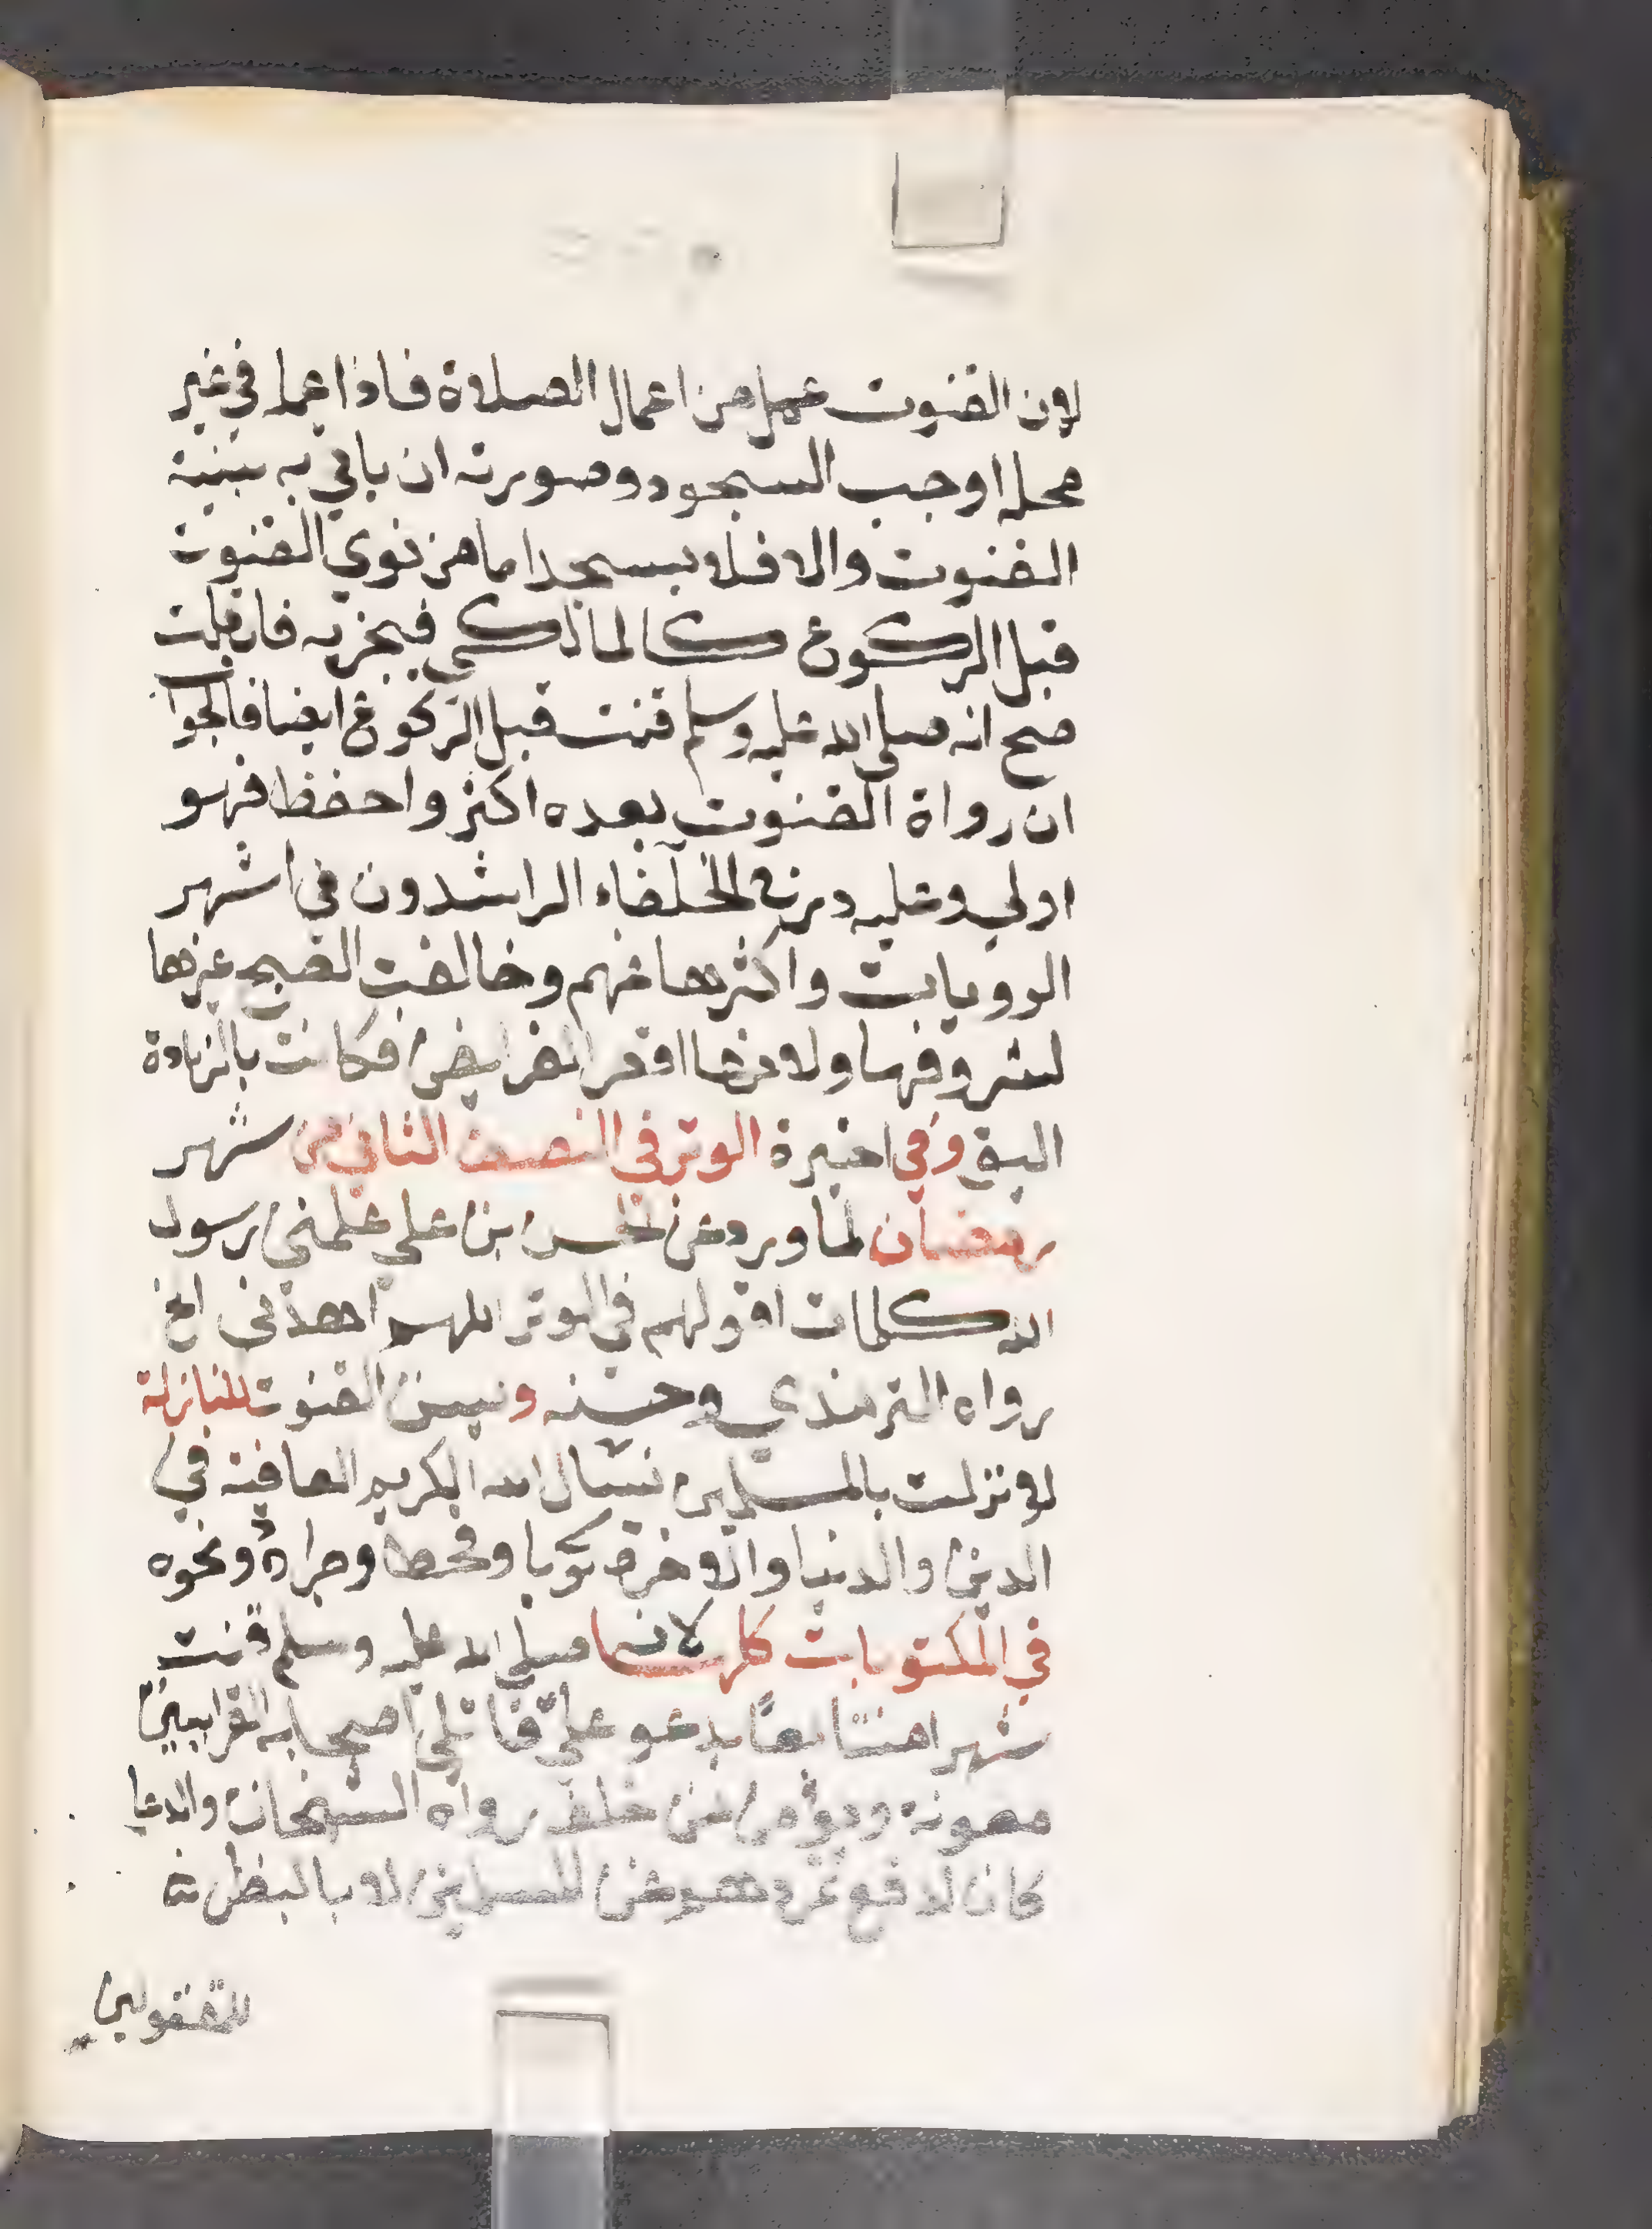 لان القنوت عمل من اعمال الصلاة فاذا عمل في غير
محله اوجب السجود وصورته ان ياتي به بنية
القنوت والا فلا يسجد اما من نوي القنوت
قبل الركوع كالمالكي فيجزيه فان قلت
صح انه صلي الله عليه وسلم قنت قبل الركوع ايضا فالجوا
ان رواة القنوت بعده اكثر واحفظ فهو
اولي وعليه درج الخلفاء الراشدون في اشهر
الرويات واكثرها عنهم وخالفت الصبح غيرها
لشروفها ولانها اقصر الفرايض فكانت بالزيادة
اليق وفي اخيرة الوتر في النصف الثاني من شهر
رمضان لما ورد عن الحسن بن علي علمني رسول
الله كلمات اقولهم في الوتر اللهم اهدني الخ
رواه الترمذي وحسنه ويسن القنوت للنازلة
لو نزلت بالمسلمين نسال الله الكريم العافية في
الدين والدنيا والاخرة كوبا وقحط وجراد ونحوه
في المكتوبات كلها لانه صلي الله عليه وسلم قنت
شهرا متتابعًا يدعو علي قاتلي اصحابه القرا ببير
معونة ويؤمن من خلفه رواه الشيخان والدعا
كان لدفع تمردهم عن المسلمين لا بالنظر
للمقتولين